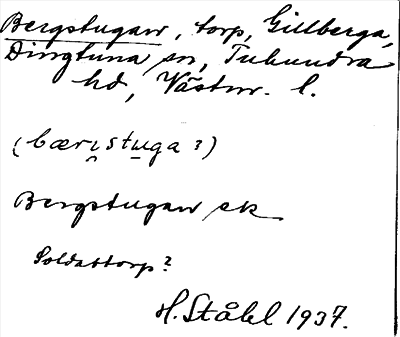 Bergstugan, torp, Gillberga,
Dingtuna sn, Tuhundra
hd, Västm. l.
(bærıstuga?)
Bergstugan ek
Soldattorp?
H. Ståhl 1937.